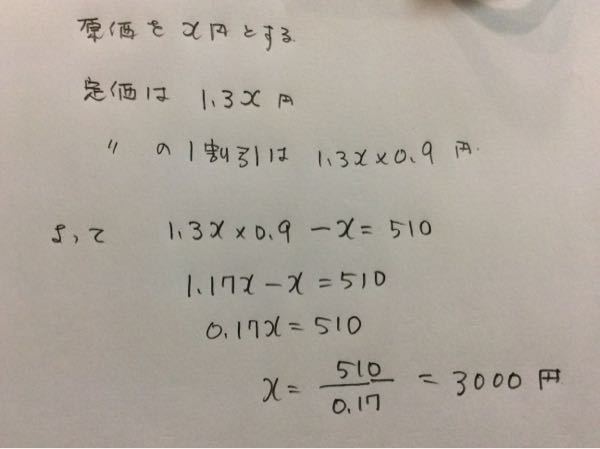 原価を x円とする
定価は 1.3x 円
〃 の 1割引は 1.3x×0.9 円.
よって 1.3x×0.9 −x= 510
1.17x−x=510
0.17x=510
x= 510/0.17 = 3000 円